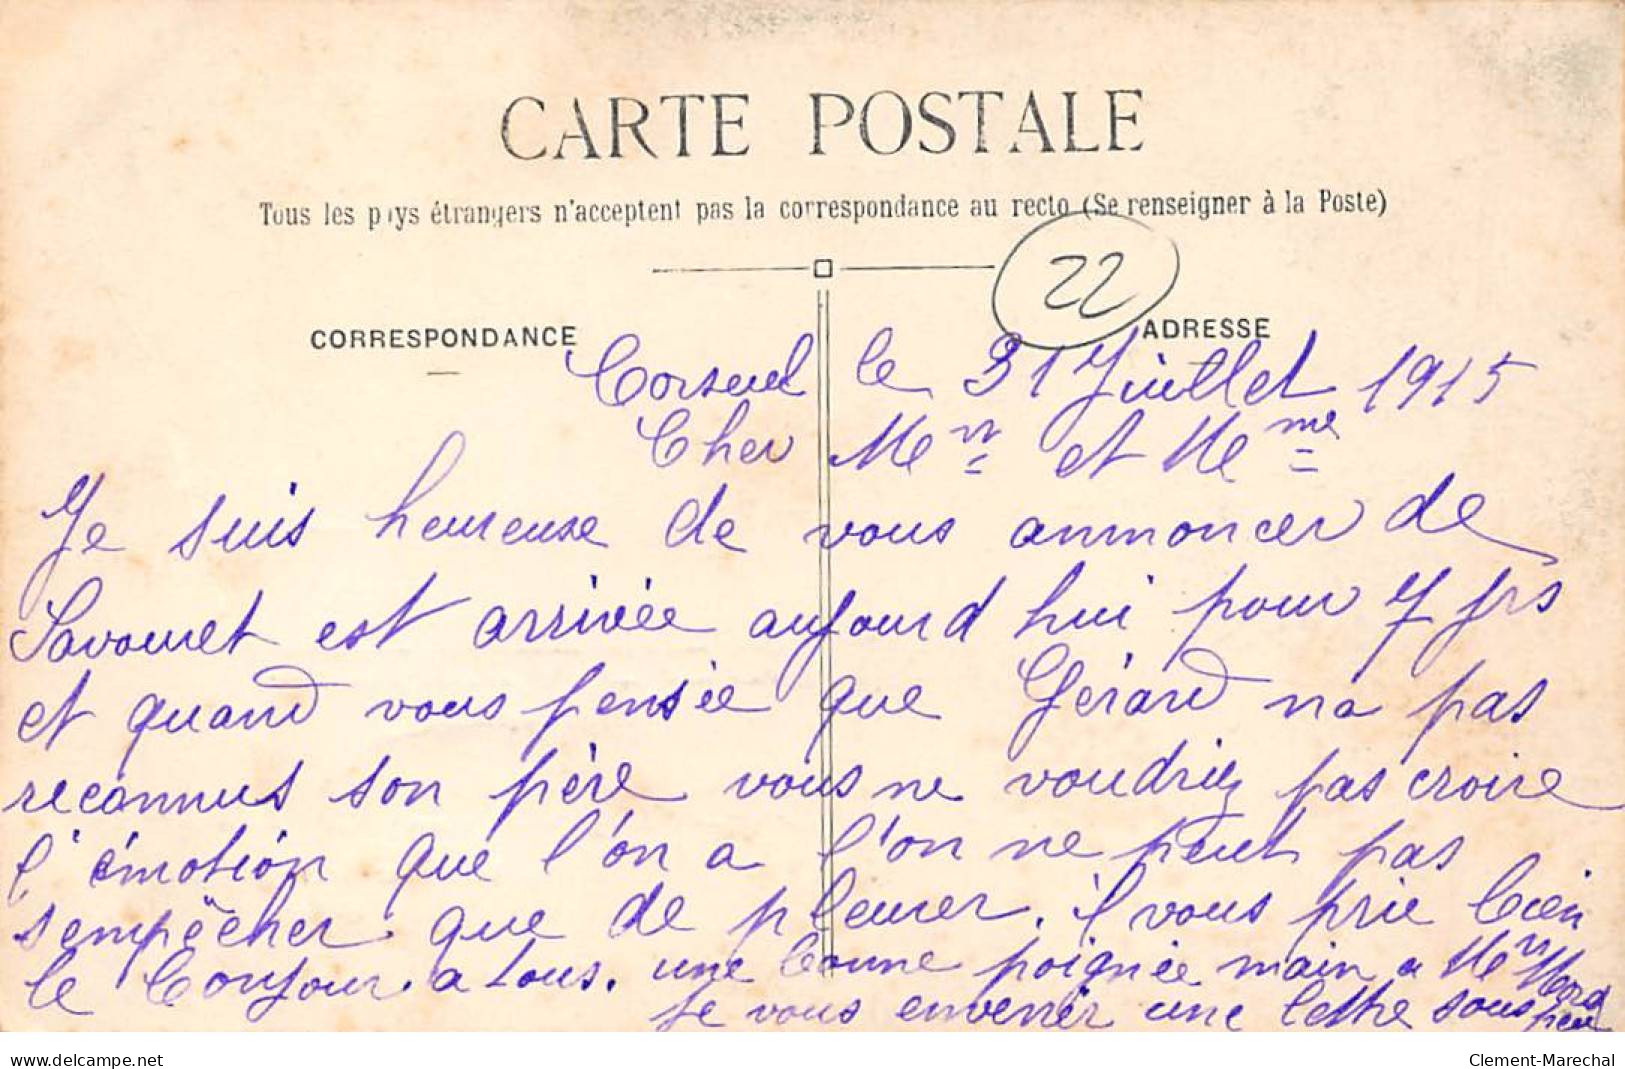 CARTE POSTALE
Tous les pays étrangers n'acceptent pas la correspondance au recto (Se renseigner à la Poste)
22
CORRESPONDANCE
ADRESSE
Corseul le 31 Juillet 1915
Cher Mr et Mme
Je suis heureuse de vous annoncer de
Savouret est arrivée aujourd hui pour 7 jrs
et quand vous pensée que Gérard na pas
reconnus son père vous ne voudriez pas croire
l'émotion que l'on a l'on ne peut pas
sempêcher que de pleurer. il vous prie bien
le Bonjour. a tous. une bonne poignée main a Mr
Je vous envenir une lettre sous peu
www.delcampe.net
Clement-Marechal